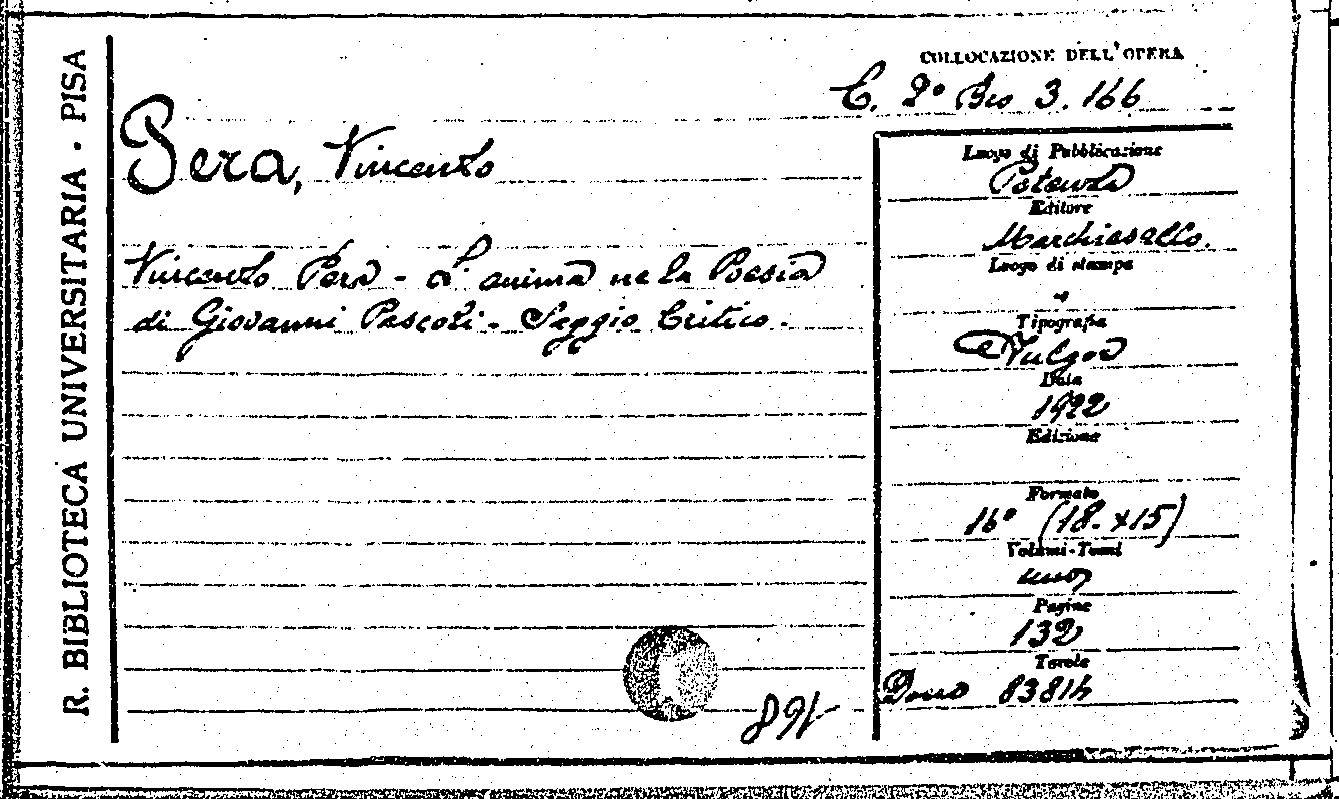 R. BIBLIOTECA UNIVERSITARIA · PISA
COLLOCAZIONE DELL'OPERA
C. 2° Bis 3. 166
Pera, Vincenzo
Vincenzo Pera - L'anima ne la Poesia
di Giovanni Pascoli - Saggio Critico.
Luogo di Pubblicazione
Potenza
Editore
Marchiesello.
Luogo di stampa
"
Tipografia
Fulgur
Data
1922
Edizione
Formato
16° (18.×15)
Volumi-Tomi
uno
Pagine
132
Tavole
Dono 83816
891